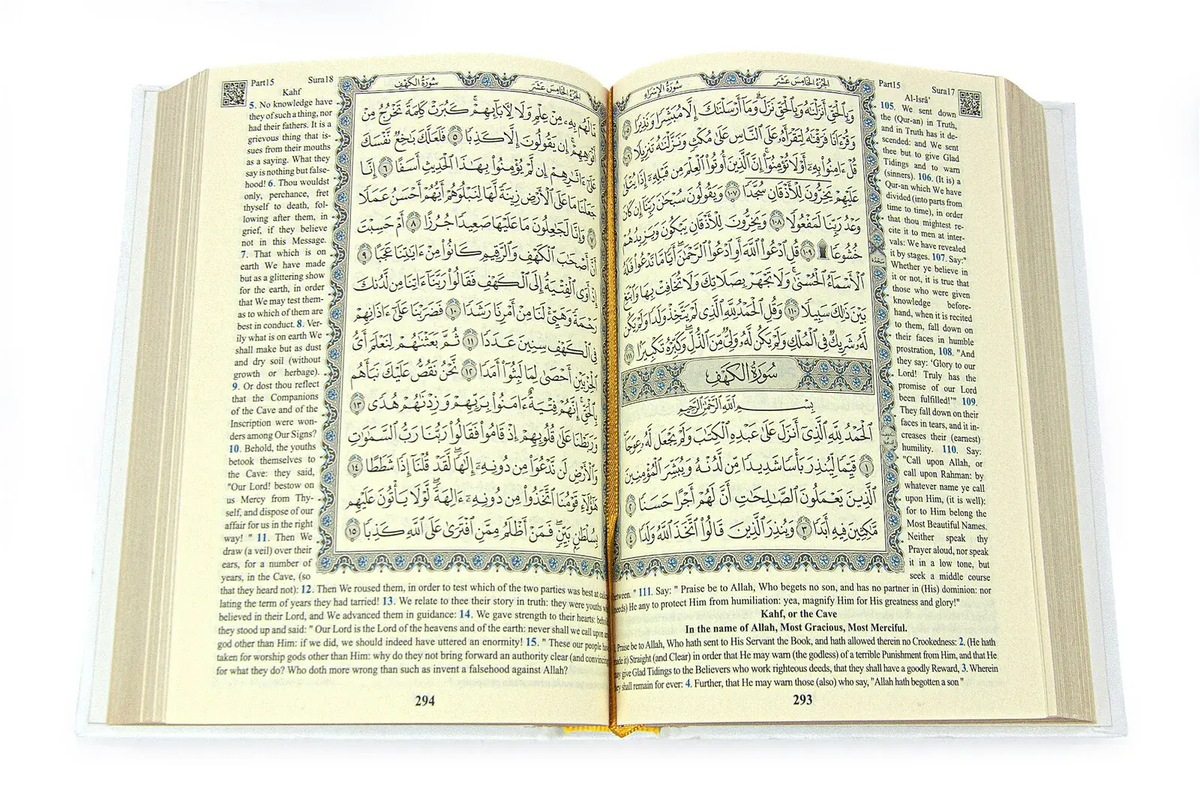 Part15
Sura17
سُورَةُ الإِسْرَاءِ
الجُزْءُ الخَامِسَ عَشَرَ
وَبِالْحَقِّ أَنزَلْنَٰهُ وَبِالْحَقِّ نَزَلَ ۗ وَمَآ أَرْسَلْنَٰكَ إِلَّا مُبَشِّرًا وَنَذِيرًا ١٠٥
وَقُرْءَانًا فَرَقْنَٰهُ لِتَقْرَأَهُۥ عَلَى النَّاسِ عَلَىٰ مُكْثٍ وَنَزَّلْنَٰهُ تَنزِيلًا ١٠٦
قُلْ ءَامِنُوا بِهِۦٓ أَوْ لَا تُؤْمِنُوٓا ۚ إِنَّ الَّذِينَ أُوتُوا الْعِلْمَ مِن قَبْلِهِۦٓ إِذَا يُتْلَىٰ
عَلَيْهِمْ يَخِرُّونَ لِلْأَذْقَانِ سُجَّدًا ١٠٧ وَيَقُولُونَ سُبْحَٰنَ رَبِّنَآ إِن كَانَ
وَعْدُ رَبِّنَا لَمَفْعُولًا ١٠٨ وَيَخِرُّونَ لِلْأَذْقَانِ يَبْكُونَ وَيَزِيدُهُمْ
خُشُوعًا ۩ ١٠٩ قُلِ ادْعُوا اللَّهَ أَوِ ادْعُوا الرَّحْمَٰنَ ۖ أَيًّا مَّا تَدْعُوا فَلَهُ
الْأَسْمَآءُ الْحُسْنَىٰ ۚ وَلَا تَجْهَرْ بِصَلَاتِكَ وَلَا تُخَافِتْ بِهَا وَابْتَغِ
بَيْنَ ذَٰلِكَ سَبِيلًا ١١٠ وَقُلِ الْحَمْدُ لِلَّهِ الَّذِي لَمْ يَتَّخِذْ وَلَدًا وَلَمْ يَكُن
لَّهُۥ شَرِيكٌ فِي الْمُلْكِ وَلَمْ يَكُن لَّهُۥ وَلِيٌّ مِّنَ الذُّلِّ ۖ وَكَبِّرْهُ تَكْبِيرًا ١١١
سُورَةُ الكَهْفِ
بِسْمِ اللَّهِ الرَّحْمَٰنِ الرَّحِيمِ
الْحَمْدُ لِلَّهِ الَّذِيٓ أَنزَلَ عَلَىٰ عَبْدِهِ الْكِتَٰبَ وَلَمْ يَجْعَل لَّهُۥ عِوَجَا
١ قَيِّمًا لِّيُنذِرَ بَأْسًا شَدِيدًا مِّن لَّدُنْهُ وَيُبَشِّرَ الْمُؤْمِنِينَ
الَّذِينَ يَعْمَلُونَ الصَّٰلِحَٰتِ أَنَّ لَهُمْ أَجْرًا حَسَنًا ٢
مَّٰكِثِينَ فِيهِ أَبَدًا ٣ وَيُنذِرَ الَّذِينَ قَالُوا اتَّخَذَ اللَّهُ وَلَدًا ٤
Al-Isrâ'
105. We sent down
the (Qur-an) in Truth,
and in Truth has it de-
scended: and We sent
thee but to give Glad
Tidings and to warn
(sinners). 106. (It is) a
Qur-an which We have
divided (into parts from
time to time), in order
that thou mightest re-
cite it to men at inter-
vals: We have revealed
it by stages. 107. Say:"
Whether ye believe in
it or not, it is true that
those who were given
knowledge before-
hand, when it is recited
to them, fall down on
their faces in humble
prostration, 108. "And
they say: 'Glory to our
Lord! Truly has the
promise of our Lord
been fulfilled!'" 109.
They fall down on their
faces in tears, and it in-
creases their (earnest)
humility. 110. Say:
"Call upon Allah, or
call upon Rahman: by
whatever name ye call
upon Him, (it is well):
for to Him belong the
Most Beautiful Names.
Neither speak thy
Prayer aloud, nor speak
it in a low tone, but
seek a middle course
between. " 111. Say: " Praise be to Allah, Who begets no son, and has no partner in (His) dominion: nor
(needs) He any to protect Him from humiliation: yea, magnify Him for His greatness and glory!"
Kahf, or the Cave
In the name of Allah, Most Gracious, Most Merciful.
Praise be to Allah, Who hath sent to His Servant the Book, and hath allowed therein no Crookedness: 2. (He hath
made it) Straight (and Clear) in order that He may warn (the godless) of a terrible Punishment from Him, and that He
may give Glad Tidings to the Believers who work righteous deeds, that they shall have a goodly Reward, 3. Wherein
they shall remain for ever: 4. Further, that He may warn those (also) who say, "Allah hath begotten a son "
293
Part15
Sura18
سُورَةُ الكَهْفِ
الجُزْءُ الخَامِسَ عَشَرَ
مَّا لَهُم بِهِۦ مِنْ عِلْمٍ وَلَا لِـَٔابَآئِهِمْ ۚ كَبُرَتْ كَلِمَةً تَخْرُجُ مِنْ
أَفْوَٰهِهِمْ ۚ إِن يَقُولُونَ إِلَّا كَذِبًا ٥ فَلَعَلَّكَ بَٰخِعٌ نَّفْسَكَ
عَلَىٰٓ ءَاثَٰرِهِمْ إِن لَّمْ يُؤْمِنُوا بِهَٰذَا الْحَدِيثِ أَسَفًا ٦ إِنَّا
جَعَلْنَا مَا عَلَى الْأَرْضِ زِينَةً لَّهَا لِنَبْلُوَهُمْ أَيُّهُمْ أَحْسَنُ عَمَلًا
٧ وَإِنَّا لَجَٰعِلُونَ مَا عَلَيْهَا صَعِيدًا جُرُزًا ٨ أَمْ حَسِبْتَ
أَنَّ أَصْحَٰبَ الْكَهْفِ وَالرَّقِيمِ كَانُوا مِنْ ءَايَٰتِنَا عَجَبًا ٩
إِذْ أَوَى الْفِتْيَةُ إِلَى الْكَهْفِ فَقَالُوا رَبَّنَآ ءَاتِنَا مِن لَّدُنكَ
رَحْمَةً وَهَيِّئْ لَنَا مِنْ أَمْرِنَا رَشَدًا ١٠ فَضَرَبْنَا عَلَىٰٓ ءَاذَانِهِمْ
فِي الْكَهْفِ سِنِينَ عَدَدًا ١١ ثُمَّ بَعَثْنَٰهُمْ لِنَعْلَمَ أَيُّ
الْحِزْبَيْنِ أَحْصَىٰ لِمَا لَبِثُوٓا أَمَدًا ١٢ نَّحْنُ نَقُصُّ عَلَيْكَ نَبَأَهُم
بِالْحَقِّ ۚ إِنَّهُمْ فِتْيَةٌ ءَامَنُوا بِرَبِّهِمْ وَزِدْنَٰهُمْ هُدًى ١٣
وَرَبَطْنَا عَلَىٰ قُلُوبِهِمْ إِذْ قَامُوا فَقَالُوا رَبُّنَا رَبُّ السَّمَٰوَٰتِ
وَالْأَرْضِ لَن نَّدْعُوَا مِن دُونِهِۦٓ إِلَٰهًا ۖ لَّقَدْ قُلْنَآ إِذًا شَطَطًا ١٤
هَٰٓؤُلَآءِ قَوْمُنَا اتَّخَذُوا مِن دُونِهِۦٓ ءَالِهَةً ۖ لَّوْلَا يَأْتُونَ عَلَيْهِم
بِسُلْطَٰنٍ بَيِّنٍ ۖ فَمَنْ أَظْلَمُ مِمَّنِ افْتَرَىٰ عَلَى اللَّهِ كَذِبًا ١٥
Kahf
5. No knowledge have
they of such a thing, nor
had their fathers. It is a
grievous thing that is-
sues from their mouths
as a saying. What they
say is nothing but false-
hood! 6. Thou wouldst
only, perchance, fret
thyself to death, fol-
lowing after them, in
grief, if they believe
not in this Message.
7. That which is on
earth We have made
but as a glittering show
for the earth, in order
that We may test them-
as to which of them are
best in conduct. 8. Ver-
ily what is on earth We
shall make but as dust
and dry soil (without
growth or herbage).
9. Or dost thou reflect
that the Companions
of the Cave and of the
Inscription were won-
ders among Our Signs?
10. Behold, the youths
betook themselves to
the Cave: they said,
"Our Lord! bestow on
us Mercy from Thy-
self, and dispose of our
affair for us in the right
way! " 11. Then We
draw (a veil) over their
ears, for a number of
years, in the Cave, (so
that they heard not): 12. Then We roused them, in order to test which of the two parties was best at calcu-
lating the term of years they had tarried! 13. We relate to thee their story in truth: they were youths who
believed in their Lord, and We advanced them in guidance: 14. We gave strength to their hearts: behold,
they stood up and said: " Our Lord is the Lord of the heavens and of the earth: never shall we call upon any
god other than Him: if we did, we should indeed have uttered an enormity! 15. " These our people have
taken for worship gods other than Him: why do they not bring forward an authority clear (and convincing)
for what they do? Who doth more wrong than such as invent a falsehood against Allah?
294